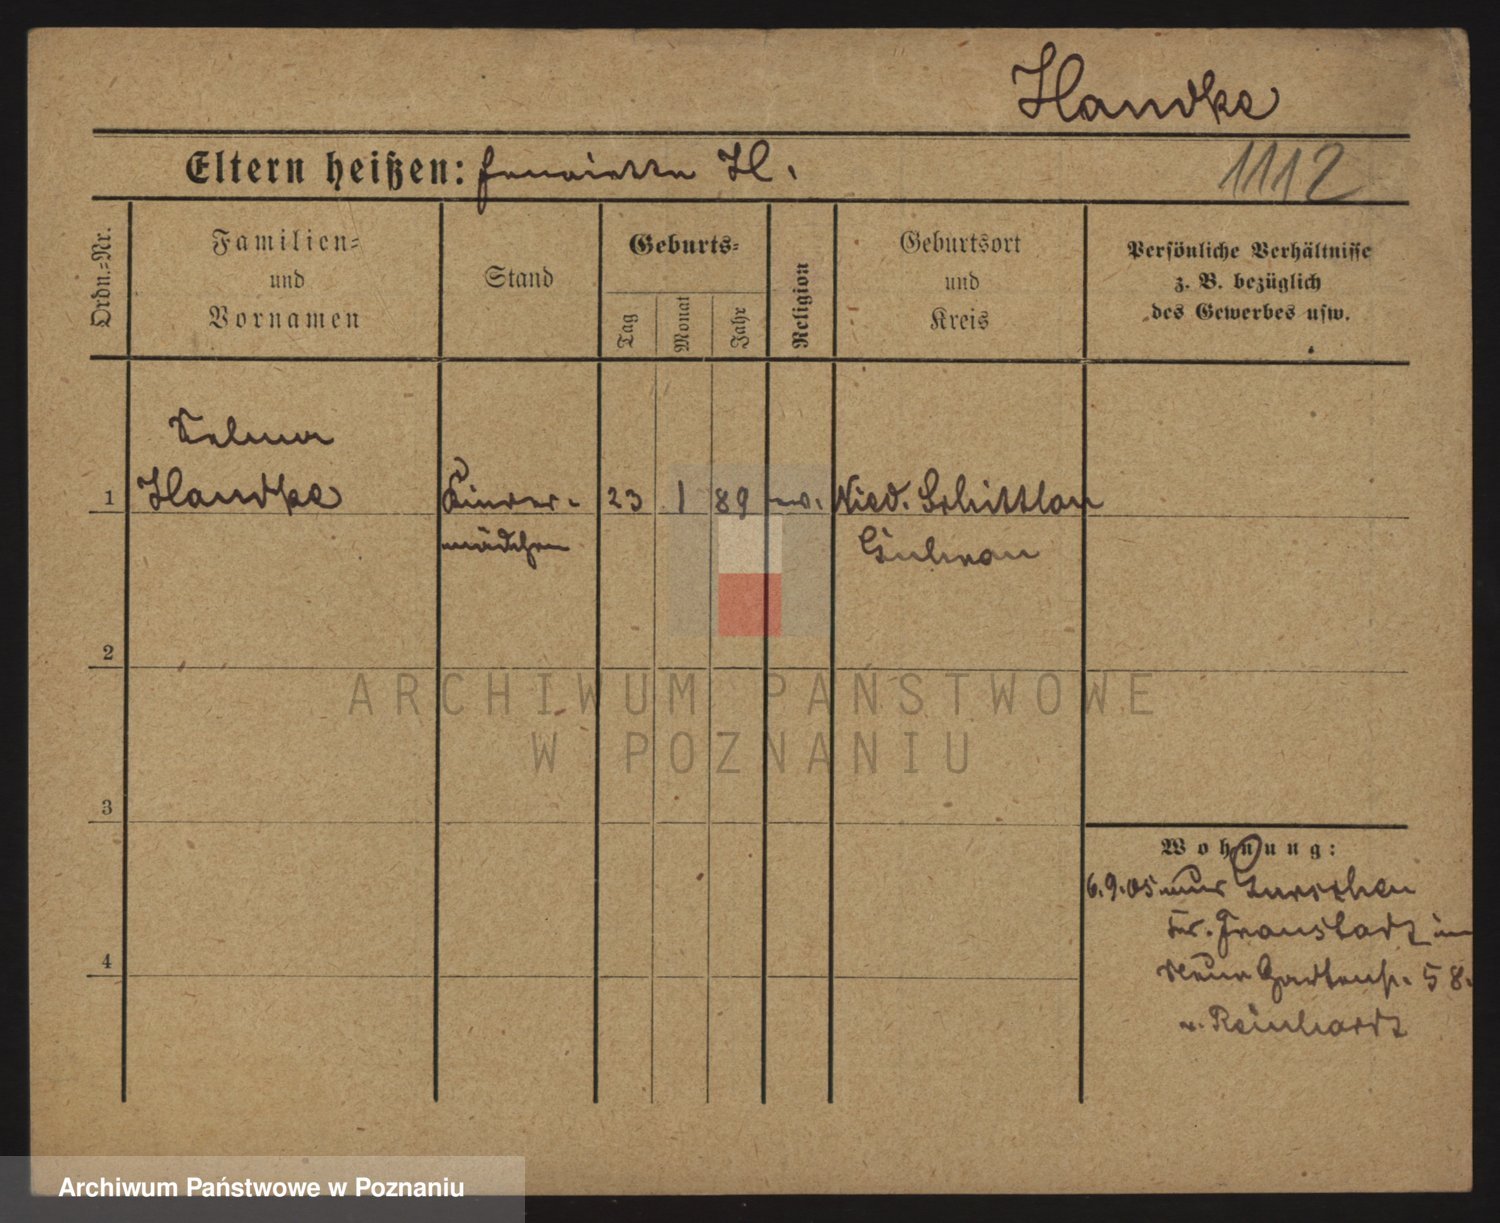 Handke
Eltern heißen: Henriette H.
1112
Ordn.-Nr.
Familien-
und
Vornamen
Stand
Geburts-
Tag
Monat
Jahr
Religion
Geburtsort
und
Kreis
Persönliche Verhältnisse
z. B. bezüglich
des Gewerbes usw.
Selma
1 Handke Kinder- 23 1 89 ev. Nied. Schüttlau
mädchen Guhrau
2
3
4
Wohnung:
6.9.05 aus
Kr. Fraustadt
Gartenstr. 58.
b. Reinhardt
ARCHIWUM PAŃSTWOWE
W POZNANIU
Archiwum Państwowe w Poznaniu